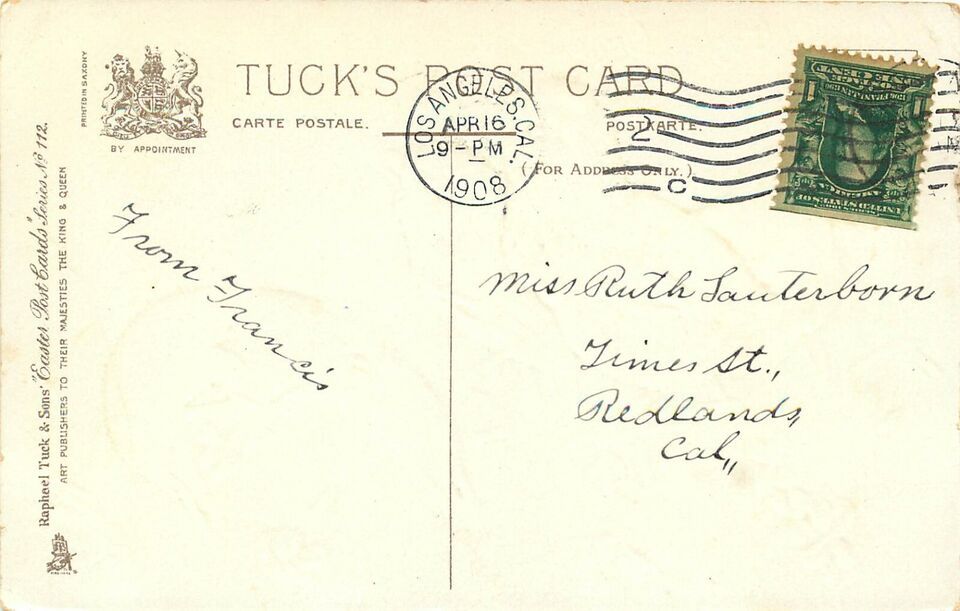 PRINTED IN SAXONY
BY APPOINTMENT
TUCK'S POST CARD
CARTE POSTALE.
POSTKARTE.
(FOR ADDRESS ONLY.)
LOS ANGELES, CAL.
APR 16
9 - PM
1908
2
C
Raphael Tuck & Sons' "Easter Post Cards" Series No 112.
ART PUBLISHERS TO THEIR MAJESTIES THE KING & QUEEN
From Francis
Miss Ruth Lauterborn
Times St.,
Redlands,
Cal,,